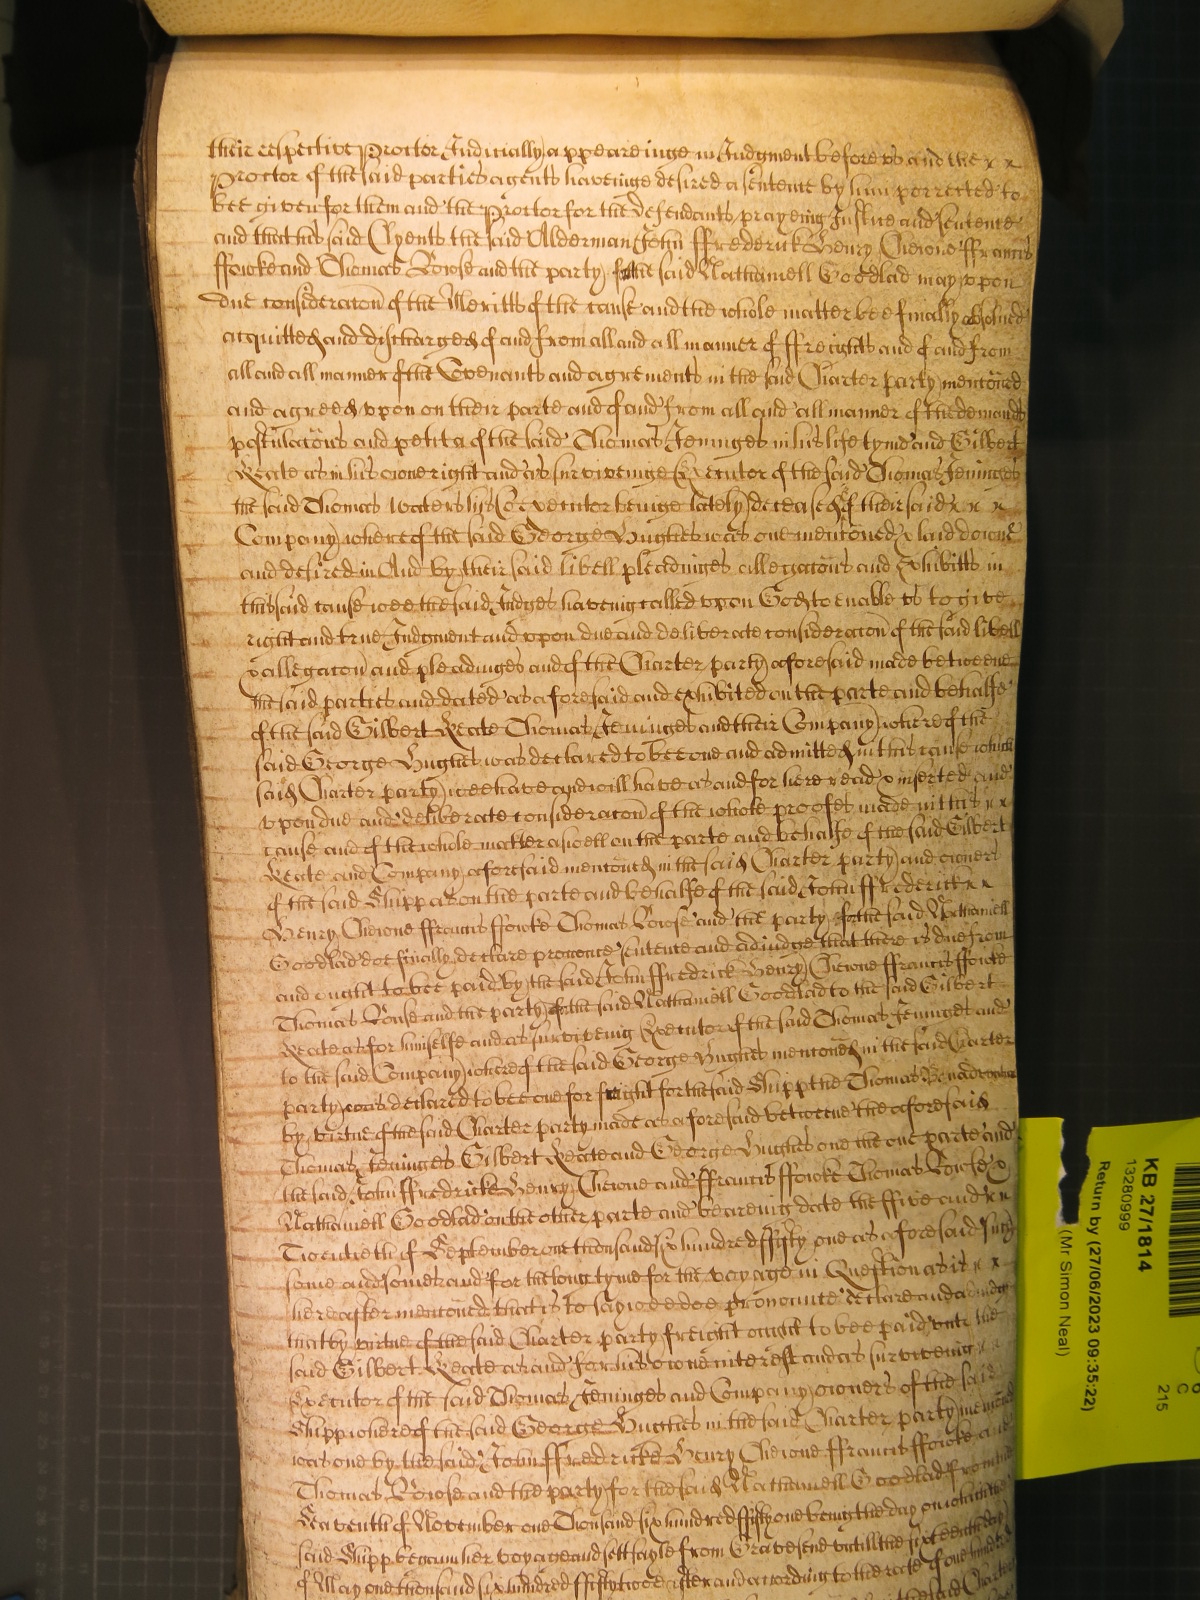 their respective Proctor Judicially appeareinge in Judgment before us and the x x
Proctor of the said parties agents haveinge desired a sentence by him porrected to
bee given for them and the Proctor for the Defendants prayeing Justice and sentence
and that his said Clyents the said Alderman John Ffrederick Henry Cheione ffrancis
ffowke and Thomas Rowse and the party for the said Nathaniell Goodlad may upon
due consideracon of the Meritts of the cause and the whole matter bee finally absolved
acquitted and discharged of and from all and all manner of ffreights and of and from
all and all manner of the Covenants and agrements in the said Charter party mentoned
and agreed upon on their parte and of and from all and all manner of the demands
postulacons and petita of the said Thomas Jeninges in his life tyme and Gilbert
Keate as in his owne right and as surviveinge Executor of the said Thomas Jeninges
the said Thomas Waters his Coexecutor beinge lately deceased of their said x x x
Company whereof the said George Hughes was one mentoned & laid downe
and desired in And by their said libell pleadinges allegacons and Exhibitts in
this said cause wee the said Judges haveing called upon God to enable us to give
right and true Judgment and upon due and deliberate consideracon of the said libell
x allegacon and pleadinges and of the Charter party aforesaid made betweene
the said parties and dated as aforesaid and exhibited on the parte and behalfe
of the said Gilbert Keate Thomas Jeninges and their Company whereof the
said George Hughes was declared to bee one and admitted in this cause which
said Charter party wee have and will have as and for here read & inserted and
upon due and deliberate consideracon of the whole proofes made in this x x
cause and of the whole matter aswell on the parte and behalfe of the said Gilbert
Keate and Company aforesaid mentoned in the said Charter party and owners
of the said Shipp as on the parte and behalfe of the said John Ffrederick x x
Henry Cheione ffrancis ffowke Thomas Rowse and the party for the said Nathaniell
Goodlad doe finally declare pronounce sentence and adjudge that there is due from
and ought to bee paid by the said John Ffredrick Henry Cheione ffrancis ffowke
Thomas Rowse and the party for the said Nathaniell Goodlad to the said Gilbert
Keate as for himselfe and as surviveing Executor of the said Thomas Jeninges and
to the said Company whereof the said George Hughes mentoned in the said Charter
party was declared to bee one for freight for the said Shipp the Thomas
by virtue of the said Charter party made as aforesaid betweene the aforesaid
Thomas Jeninges Gilbert Keate and George Hughes one the one parte and
the said John Ffredricke Henry Cheione and ffrancis ffowke Thomas Rowse &
Nathaniell Goodlad on the other parte and beareing date the ffive and x x
Twentieth of September one thousand six hundred ffifty one as aforesaid such
some and somes and for the long tyme for the voyage in Question as is x x
hereafter mentoned that is to say wee doe pronounce declare and adjudge
that by virtue of the said Charter party freight ought to bee paid unto the
said Gilbert Keate as and for his owne interest and as surviveing x x
Executor of the said Thomas Jeninges and Company owners of the said
Shipp whereof the said George Hughes in the said Charter party mentoned
was one by the said John Ffredericke Henry Cheione ffrancis ffowke and
Thomas Rowse and the party for the said Nathaniell Goodlad from the
Seaventh of November one Thousand six hundred ffifty one being the day on which the
said Shipp began her voyage and sett sayle from Gravesend untill the sixteenth day
of May one thousand six hundred ffifty two after and according to the rate of one hundred
KB 27/1814
13280999
Return by (27/06/2023 09:35:22)
(Mr Simon Neal)
C
215